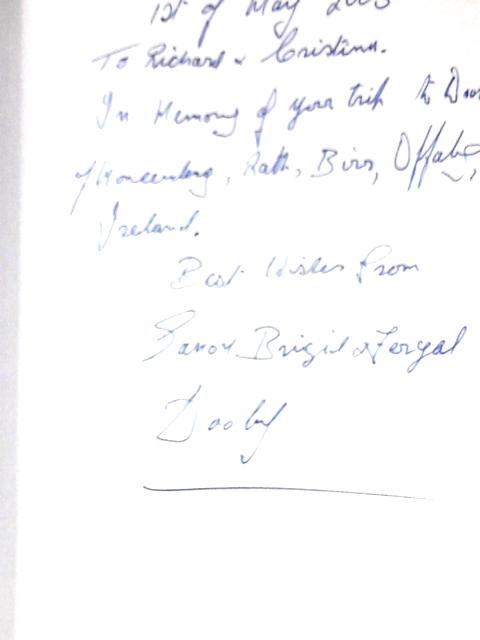 1st of May 2003
To Richard & Cristina.
In Memory of your trip to
, Rath, Birr, Offaly,
Ireland.
Best Wishes From
Brigid & Fergal
Dooly